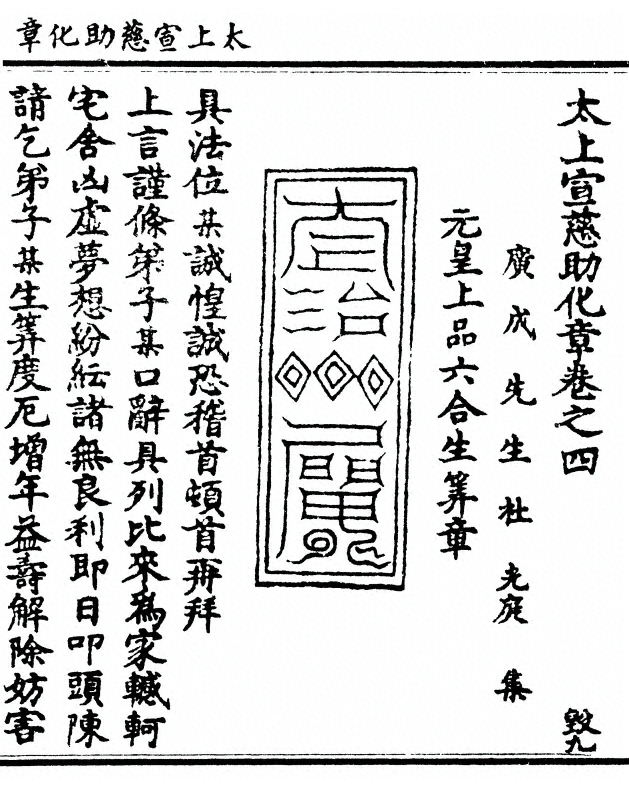 太上宣慈助化章
太上宣慈助化章卷之四
毀九
廣成先生杜光庭集
元皇上品六合生筭章
具法位某誠惶誠恐稽首頓首再拜
上言謹條弟子某口辭具列比來爲家轗軻
宅舍凶虛夢想紛紜諸無良利即日叩頭陳
請乞弟子某生筭度厄增年益壽解除妨害